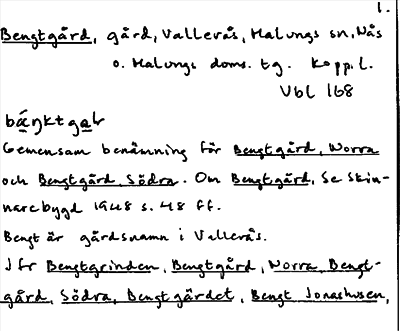 1.
Bengtgård, gård, Vallerås, Malungs sn, Nås
o. Malungs doms. tg. Kopp. l.
Vbl 168
bǽŋktgaḷ
Gemensam benämning för Bengtgård, Norra
och Bengtgård, Södra. Om Bengtgård, se Skin-
narebygd 1948 s. 48 ff.
Bengt är gårdsnamn i Vallerås.
Jfr Bengtgrinden, Bengtgård, Norra, Bengt-
gård, Södra, Bengtgärdet, Bengt Jonashusen,